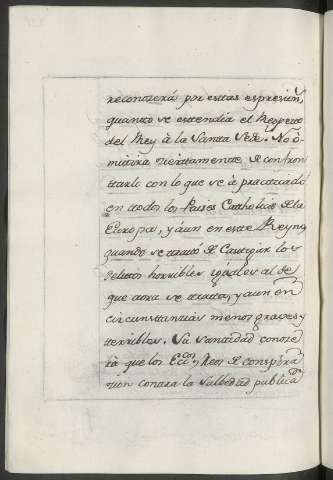 reconozerá por estas espresion,
quanto se estendia el Respecto
del Rey à la Santa Sede. No ò-
mitira ziertamente de confron
ttarlo con lo que se à practicado
en ttodos los Paises Catholicos de la
Europa, y àun en este Reyno,
quando se trattó de Castigar los
Delittos horribles yguales al de
que aora se tratta, y aun en
circunsttancias menos graves y
tterribles. Su Santtidad conoze
rà que los Ecc.cos Reos de conspira
zion contra la Salbedad publica